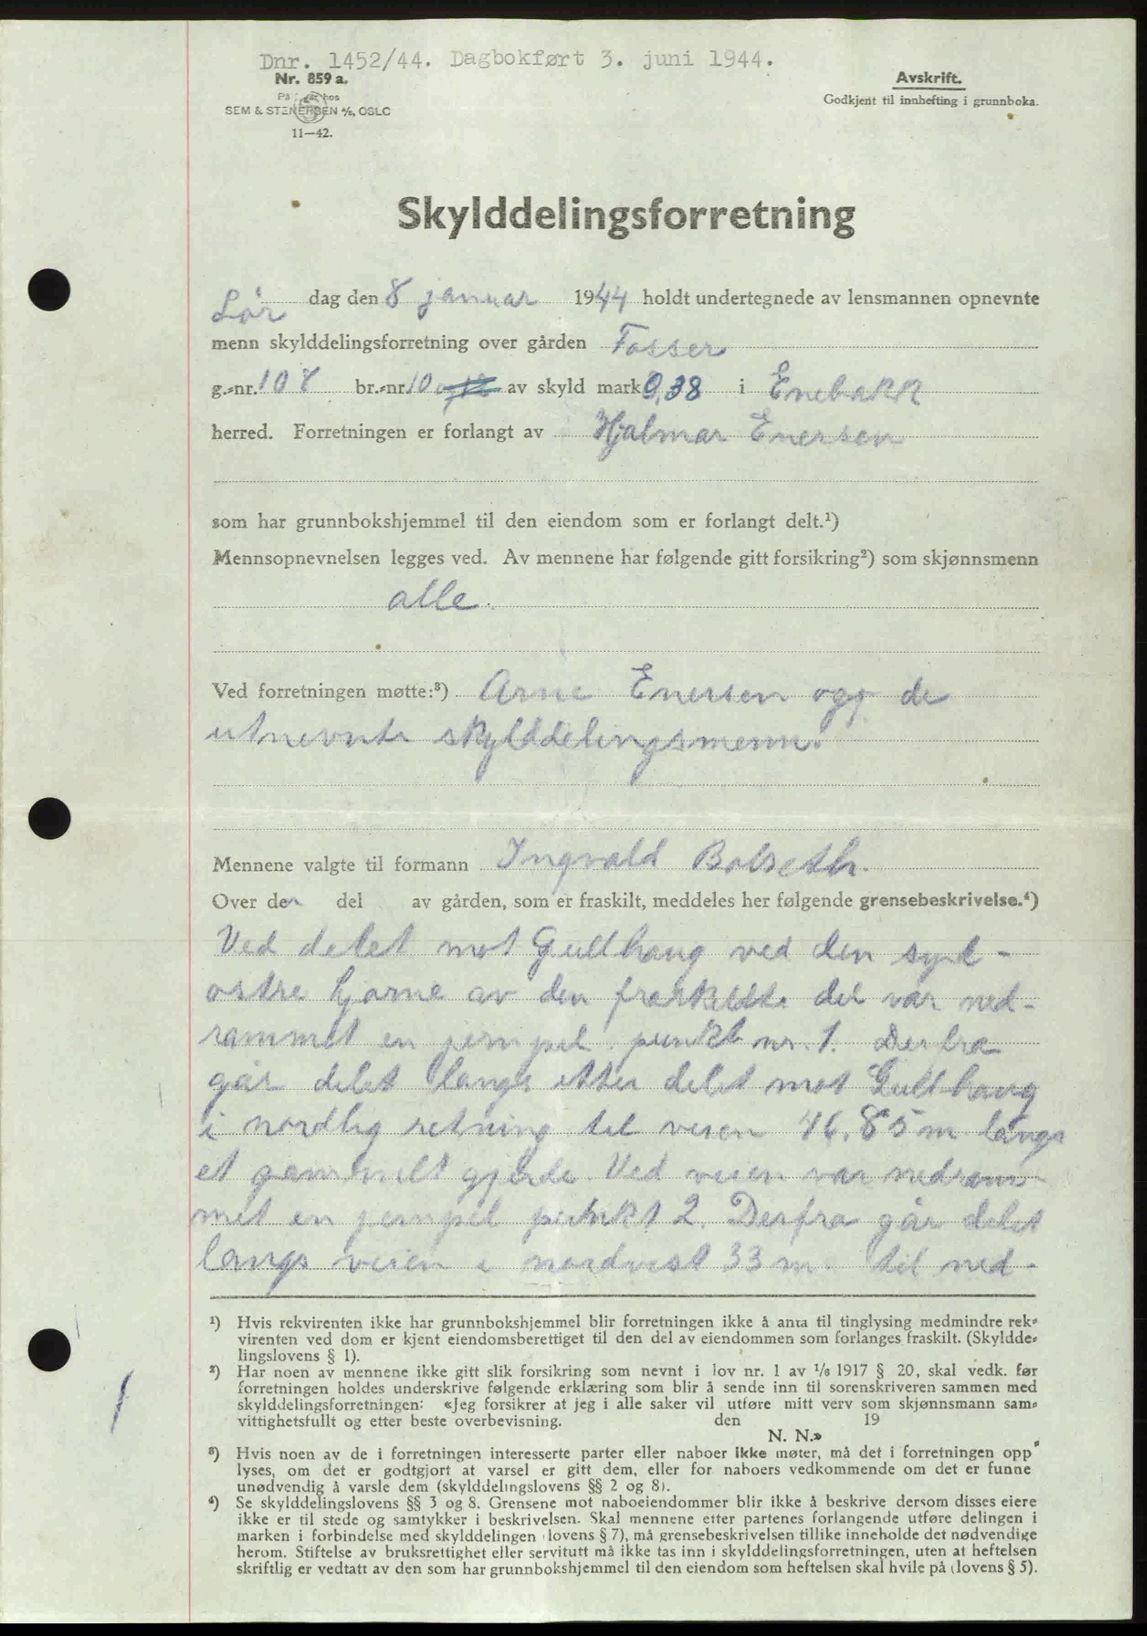 Dnr. 1452/44. Dagbokført 3. juni 1944.
Nr. 859 a.
På lager hos
SEM & STENERSEN A/S, OSLO
11—42.
Avskrift.
Godkjent til innhefting i grunnboka.
Skylddelingsforretning
Lør dag den 8 januar 1944 holdt undertegnede av lensmannen opnevnte
menn skylddelingsforretning over gården Fosser
g.-nr. 108 br.-nr. 10 av skyld mark 0,38 i Enebakk
herred. Forretningen er forlangt av Hjalmar Enersen
som har grunnbokshjemmel til den eiendom som er forlangt delt.¹)
Mennsopnevnelsen legges ved. Av mennene har følgende gitt forsikring²) som skjønnsmenn
alle.
Ved forretningen møtte:³) Arne Enersen og de
utnevnte skylddelingsmenn.
Mennene valgte til formann Ingvald Bolseth.
Over den del av gården, som er fraskilt, meddeles her følgende grensebeskrivelse.⁴)
Ved delet mot Gullhaug ved den syd-
østre hjørne av den fraskildte del var ned-
rammet en jernpel punkt nr. 1. Derfra
går delet langs etter delet mot Gullhaug
i nordlig retning til veien 46.85 m langs
et gammelt gjerde. Ved veien var nedram-
met en jernpel punkt 2. Derfra går delet
langs veien i nordvest 33 m. til ned-
1
¹) Hvis rekvirenten ikke har grunnbokshjemmel blir forretningen ikke å anta til tinglysing medmindre rek-
virenten ved dom er kjent eiendomsberettiget til den del av eiendommen som forlanges fraskilt. (Skyldde-
lingslovens § 1).
²) Har noen av mennene ikke gitt slik forsikring som nevnt i lov nr. 1 av 1/6 1917 § 20, skal vedk. før
forretningen holdes underskrive følgende erklæring som blir å sende inn til sorenskriveren sammen med
skylddelingsforretningen: «Jeg forsikrer at jeg i alle saker vil utføre mitt verv som skjønnsmann sam-
vittighetsfullt og etter beste overbevisning. den 19
N. N.»
³) Hvis noen av de i forretningen interesserte parter eller naboer ikke møter, må det i forretningen opp-
lyses, om det er godtgjort at varsel er gitt dem, eller for naboers vedkommende om det er funne
unødvendig å varsle dem (skylddelingslovens §§ 2 og 8).
⁴) Se skylddelingslovens §§ 3 og 8. Grensene mot naboeiendommer blir ikke å beskrive dersom disses eiere
ikke er til stede og samtykker i beskrivelsen. Skal mennene etter partenes forlangende utføre delingen i
marken i forbindelse med skylddelingen (lovens § 7), må grensebeskrivelsen tillike inneholde det nødvendige
herom. Stiftelse av bruksrettighet eller servitutt må ikke tas inn i skylddelingsforretningen, uten at heftelsen
skriftlig er vedtatt av den som har grunnbokshjemmel til den eiendom som heftelsen skal hvile på (lovens § 5).